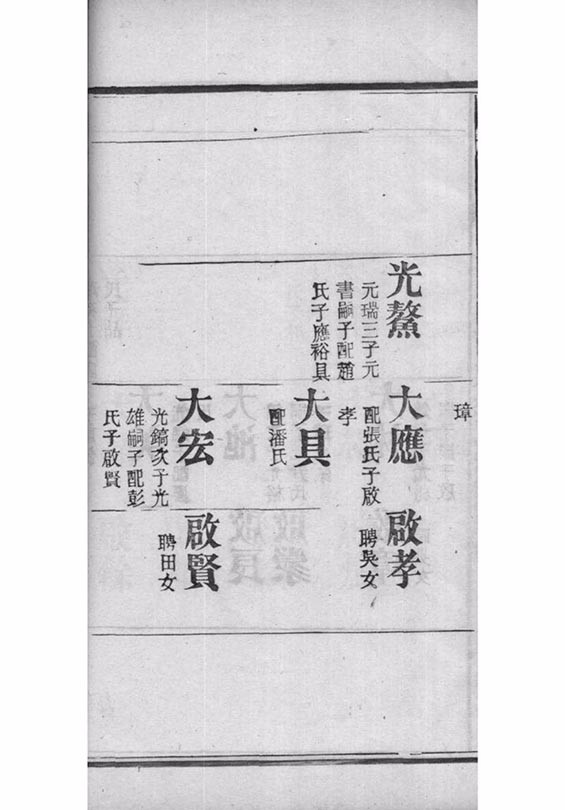 璋
光鰲
元瑞三子元
書嗣子配趙
氏子應裕具
大應
配張氏子啟
孝
啟孝
聘吳女
大具
配潘氏
大宏
光鎬次子光
雄嗣子配彭
氏子啟賢
啟賢
聘田女